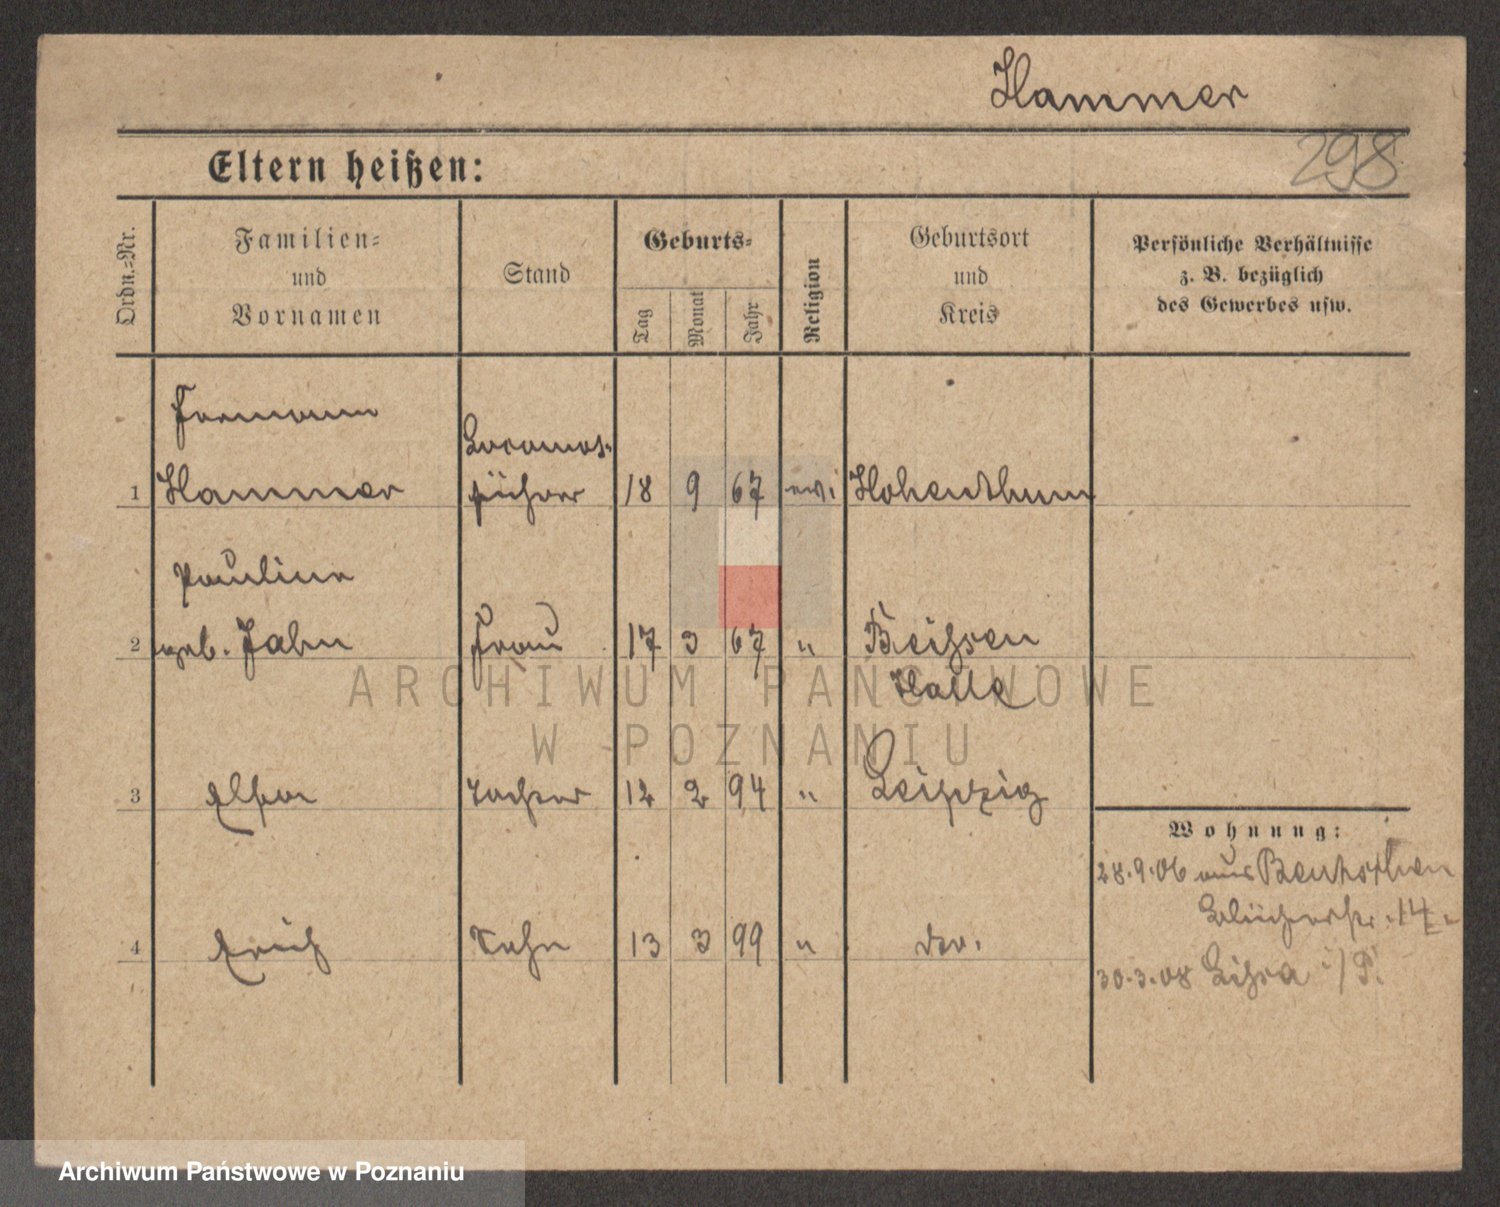 Hammer
298
Eltern heißen:
Ordn.-Nr.
Familien-
und
Vornamen
Stand
Geburts-
Tag
Monat
Jahr
Religion
Geburtsort
und
Kreis
Persönliche Verhältnisse
z. B. bezüglich
des Gewerbes usw.
Hermann
Locomot.
1 Hammer führer 18 9 67 ev. Hohenthurm
Pauline
2 geb. Jahn Frau 17 3 67 "
Halle
3 Tochter 12 2 94 " Leipzig
4 Erich Sohn 13 3 99 " do.
Wohnung:
28.9.06 aus Bentschen
Blücherstr. 14
30.3.08 Lissa i/P.
ARCHIWUM PAŃSTWOWE
W POZNANIU
Archiwum Państwowe w Poznaniu